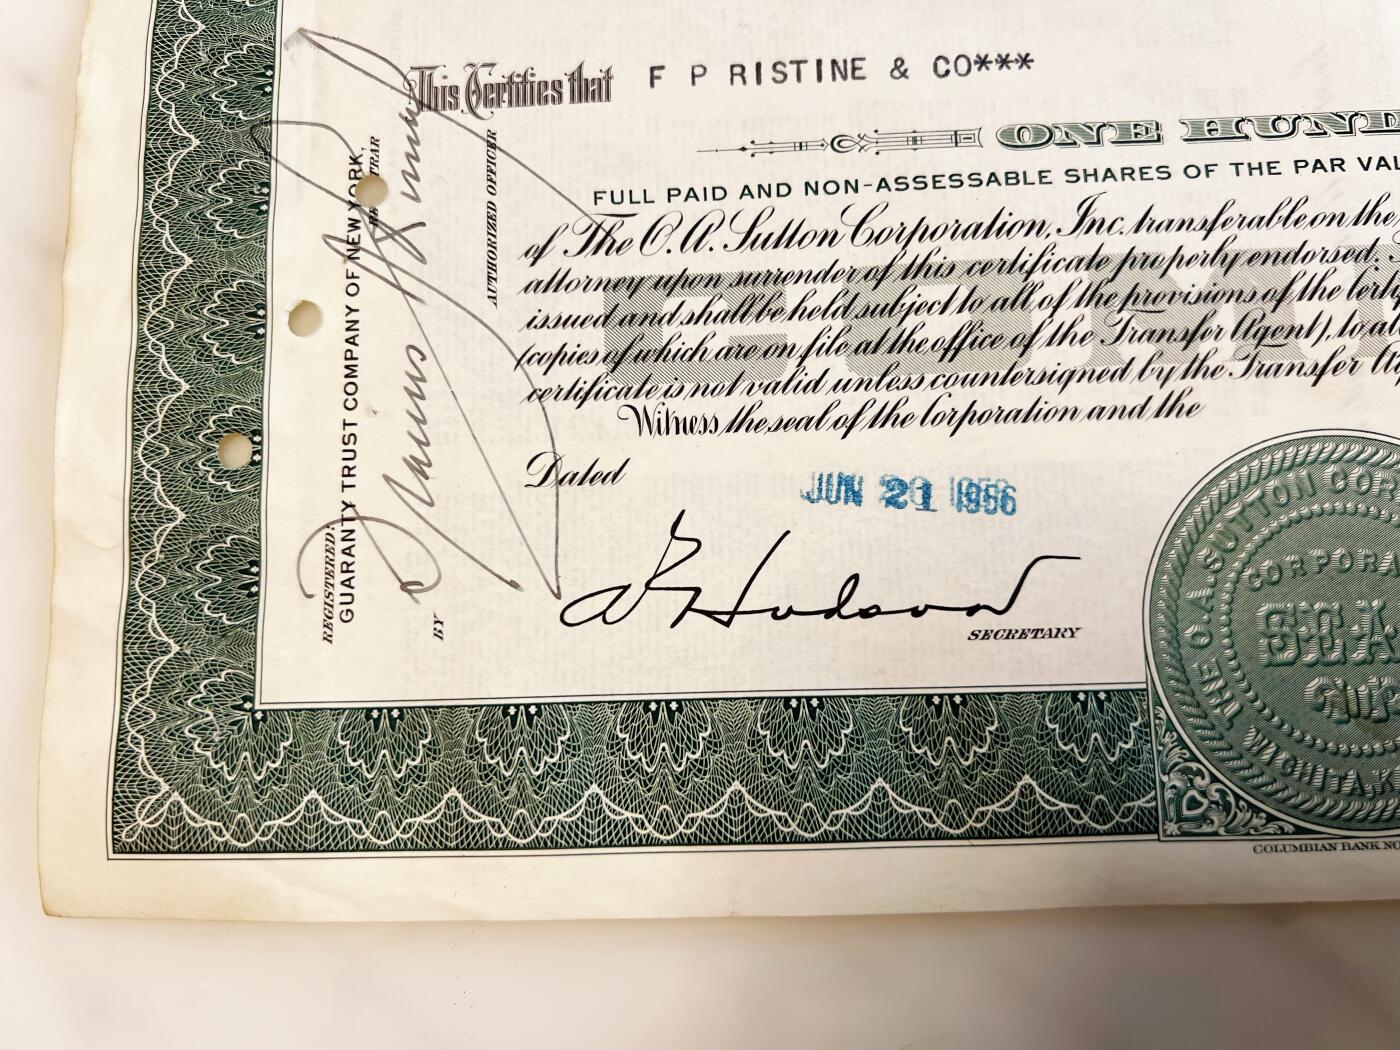 This Certifies that F P RISTINE & CO***
ONE HUND
FULL PAID AND NON-ASSESSABLE SHARES OF THE PAR VAL
of The O. A. Sutton Corporation, Inc. transferable on the
attorney upon surrender of this certificate properly endorsed.
issued and shall be held subject to all of the provisions of the
(copies of which are on file at the office of the Transfer Agent), to
certificate is not valid unless countersigned by the Transfer
Witness the seal of the Corporation and the
Dated JUN 21 1956
A F Hudson
SECRETARY
REGISTERED:
GUARANTY TRUST COMPANY OF NEW YORK,
TRAR
BY
AUTHORIZED OFFICER
THE O. A. SUTTON COR
CORPORA
SEA
WICHITA, K
COLUMBIAN BANK NO